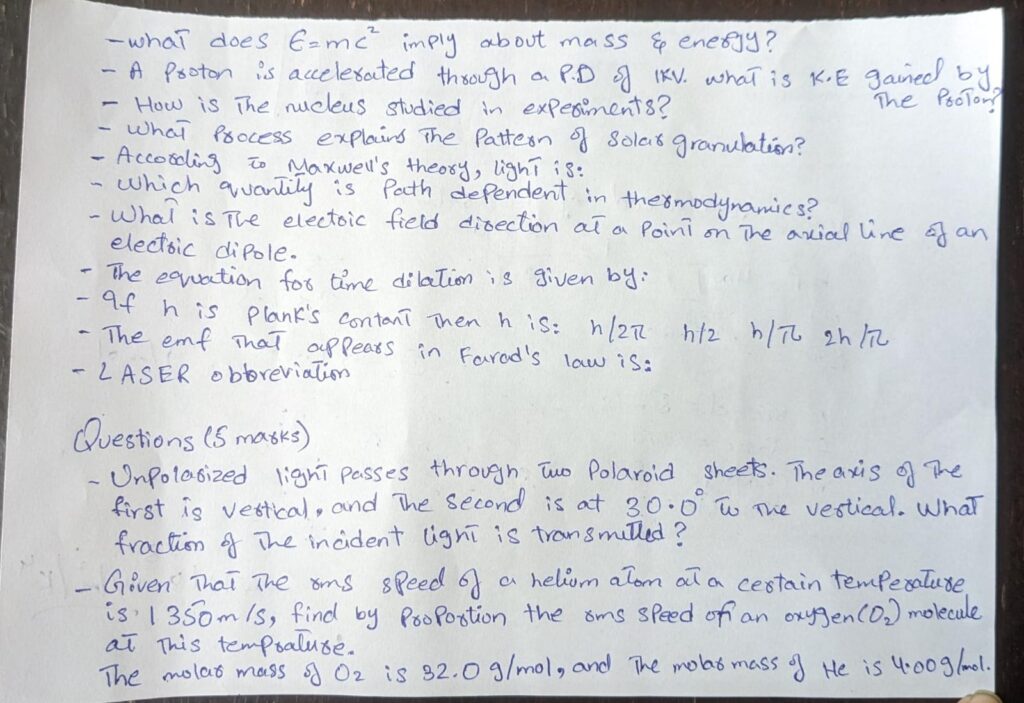 - what does E=mc² imply about mass & energy?
- A Proton is accelerated through a P.D of 1KV. what is K.E gained by
The Proton?
- How is The nucleus studied in experiments?
- What Process explains The Pattern of Solar granulation?
- According to Maxwell's theory, light is:
- Which quantity is Path dependent in thermodynamics?
- What is The electric field direction at a Point on The axial line of an
electric dipole.
- The equation for time dilation is given by:
- If h is Plank's contant Then h is: h/2π h/2 h/π 2h/π
- The emf That appears in Farad's law is:
- LASER obbreviation
Questions (5 marks)
- Unpolarized light passes through two Polaroid sheets. The axis of The
first is vertical, and The second is at 30.0° to The vertical. What
fraction of The incident light is transmitted?
- Given That The rms speed of a helium atom at a certain temperature
is 1350m/s, find by Proportion the rms speed of an oxygen (O₂) molecule
at This temprature.
The molar mass of O₂ is 32.0 g/mol, and The molar mass of He is 4.00g/mol.